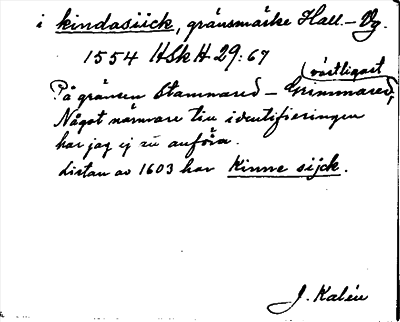 i kindasiick, gränsmärke Hall.–Vg.
1554 HSkH 29:67
(västligast
På gränsen Stamnared – Grimmared,
Något närmare till identifieringen
har jag ej att anföra.
Listan av 1603 har Kinne sijck.
J. Kalén